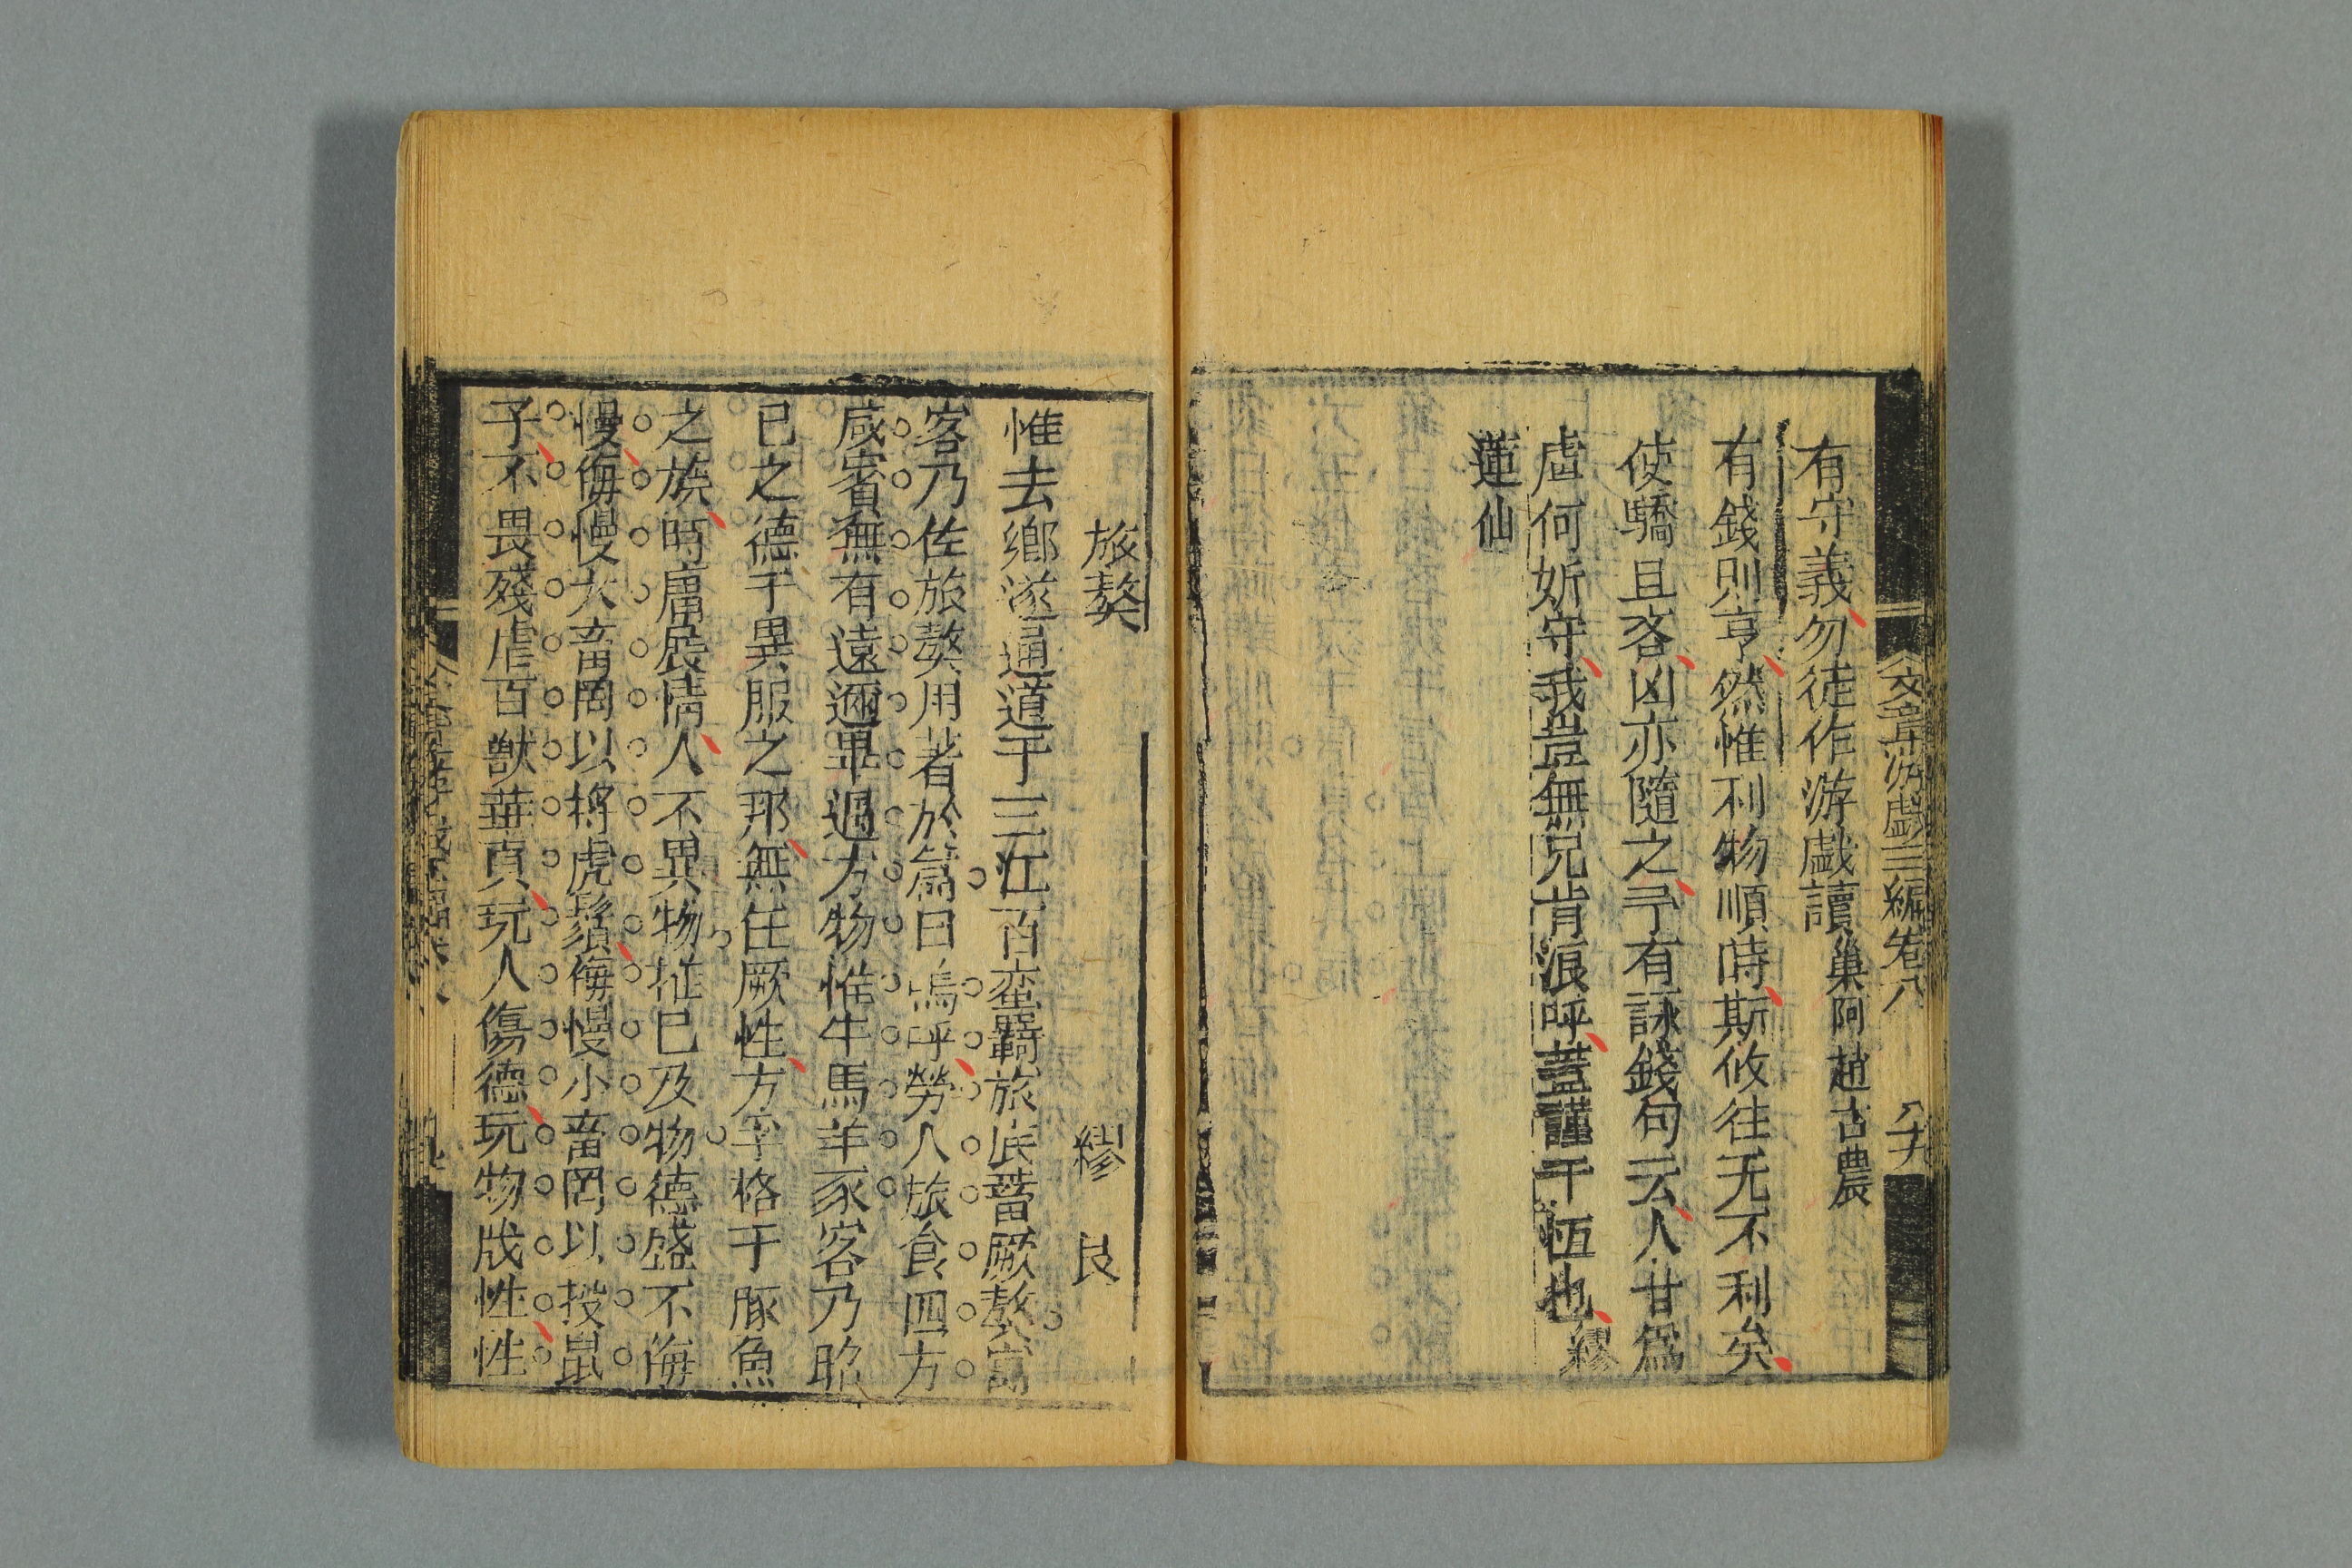 文章游戲三編卷八
有守義勿徒作游戲讀巢阿趙古農
有錢則亨然惟利物順時斯攸往无不利矣
使驕且吝凶亦隨之予有詠錢句云人甘爲
虜何妨守我豈無兄肯浪呼蓋謹于恆也繆
蓮仙
旅獒
繆艮
惟去鄉遂通道于三江百蠻羇旅底蓄厥獒寓
客乃佐旅獒用著於篇曰嗚呼勞人旅食四方
咸賓無有遠邇畢過方物惟牛馬羊豕客乃昭
已之德于異服之邦無任厥性方孚格于豚魚
之族時庸展情人不異物推已及物德盛不侮
慢侮慢大畜罔以捋虎鬚侮慢小畜罔以投鼠
子不畏殘虐百獸華貞玩人傷德玩物戕性性